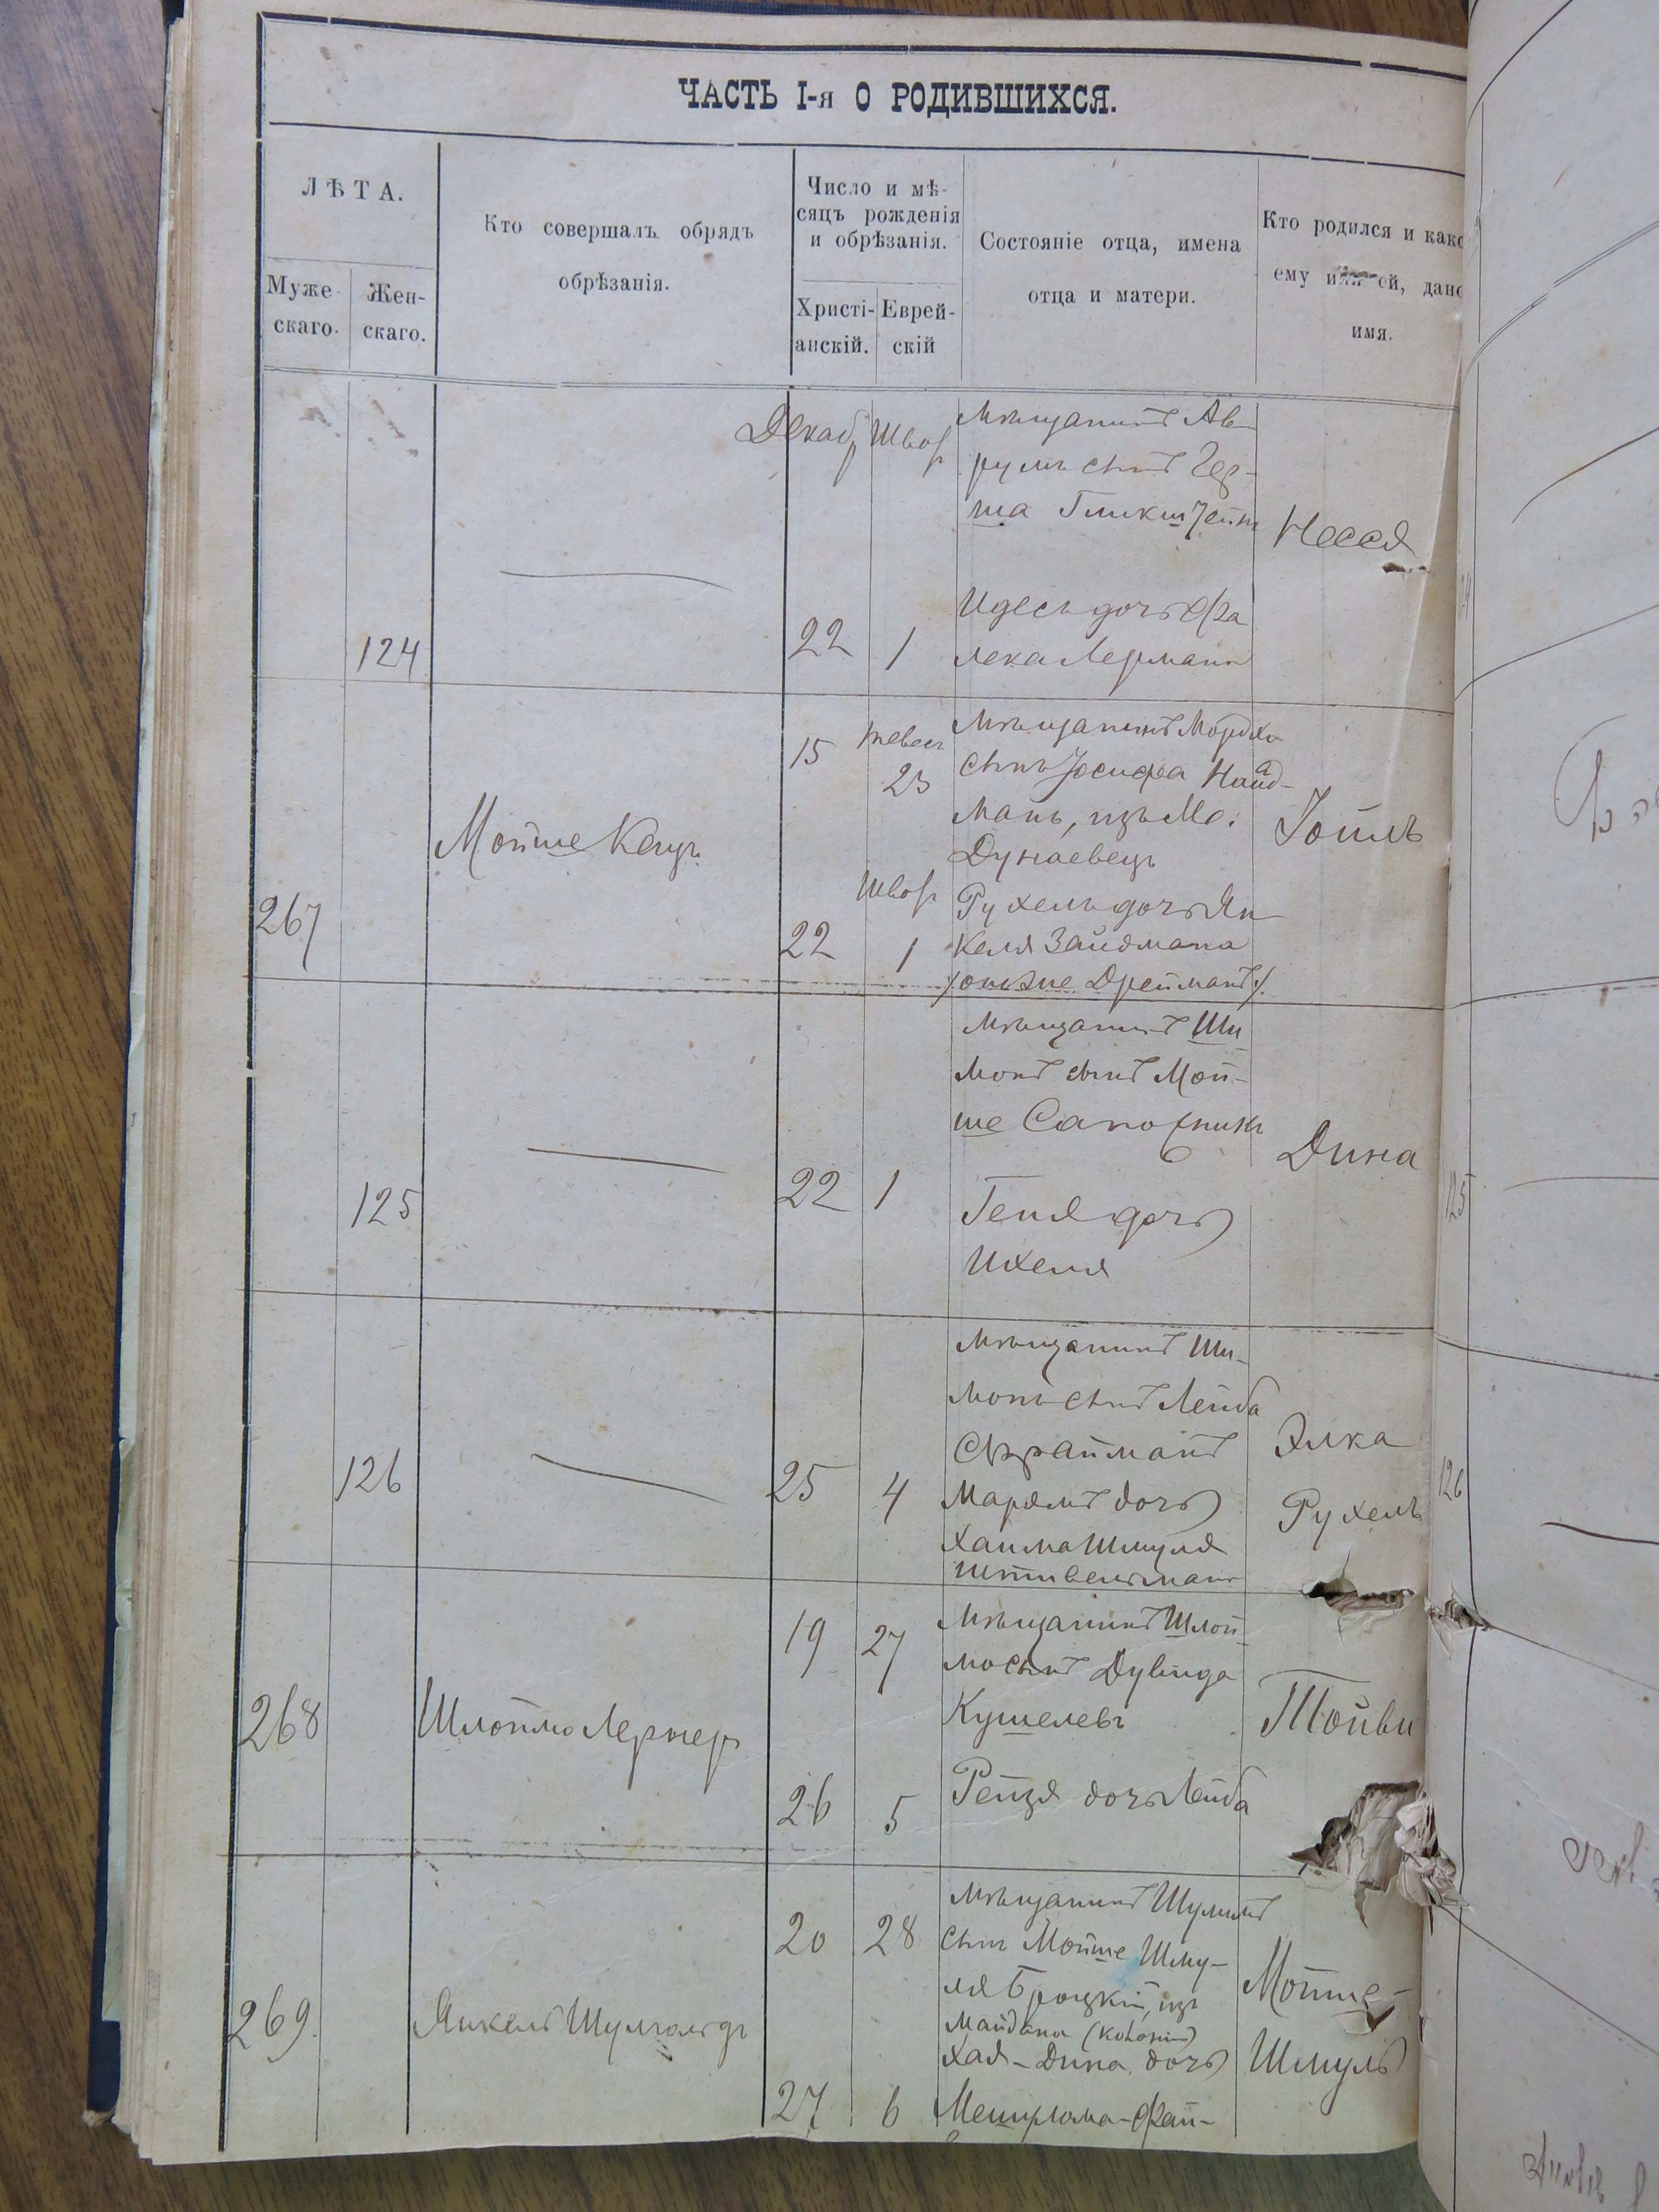 ЧАСТЬ I-я О РОДИВШИХСЯ.
ЛѢТА.
Муже-
скаго.
Жен-
скаго.
Кто совершалъ обрядъ
обрѣзанія.
Число и мѣ-
сяцъ рожденія
и обрѣзанія.
Христі-
анскій.
Еврей-
скій
Состояніе отца, имена
отца и матери.
Кто родился и како
ему или ей, дано
имя.
124
Декабр
22
Швот
1
Мѣщанинъ Ав-
румъ сынъ Гер-
ша
Идесь дочь
лека Лерманъ
Несся
267
Мойше Кацъ
15
Тевесъ
23
22
1
Мѣщанинъ Мордхо
сынъ Іосифа Найд-
манъ, изъ Мс.
Дунаевецъ
Рухель дочь Ян-
келя Зайдмана
Дрейманъ
Іойль
125
22
1
Мѣщанинъ Ши-
монъ сынъ Мой-
ше Сапожникъ
Геня дочь
Ихеля
Дина
125
126
25
4
Мѣщанинъ Ши-
монъ сынъ Лейба
Фрайманъ
Марямъ дочь
Хаима Шмуля
Штивельманъ
Элка
Рухель
126
268
Шлоймо Лернеръ
19
27
26
5
Мѣщанинъ Шлой-
мо сынъ Дувида
Кушелевъ
Рейзя дочь Лейба
Тойви
269.
Янкель Шумгольдъ
20
28
27
6
Мѣщанинъ Шулимъ
сынъ Мойше Шму-
ля Бродзкій, изъ
Майдана (Колоніи)
Хая-Дина дочь
Мешулома-Фай-
Мойше-
Шмуль